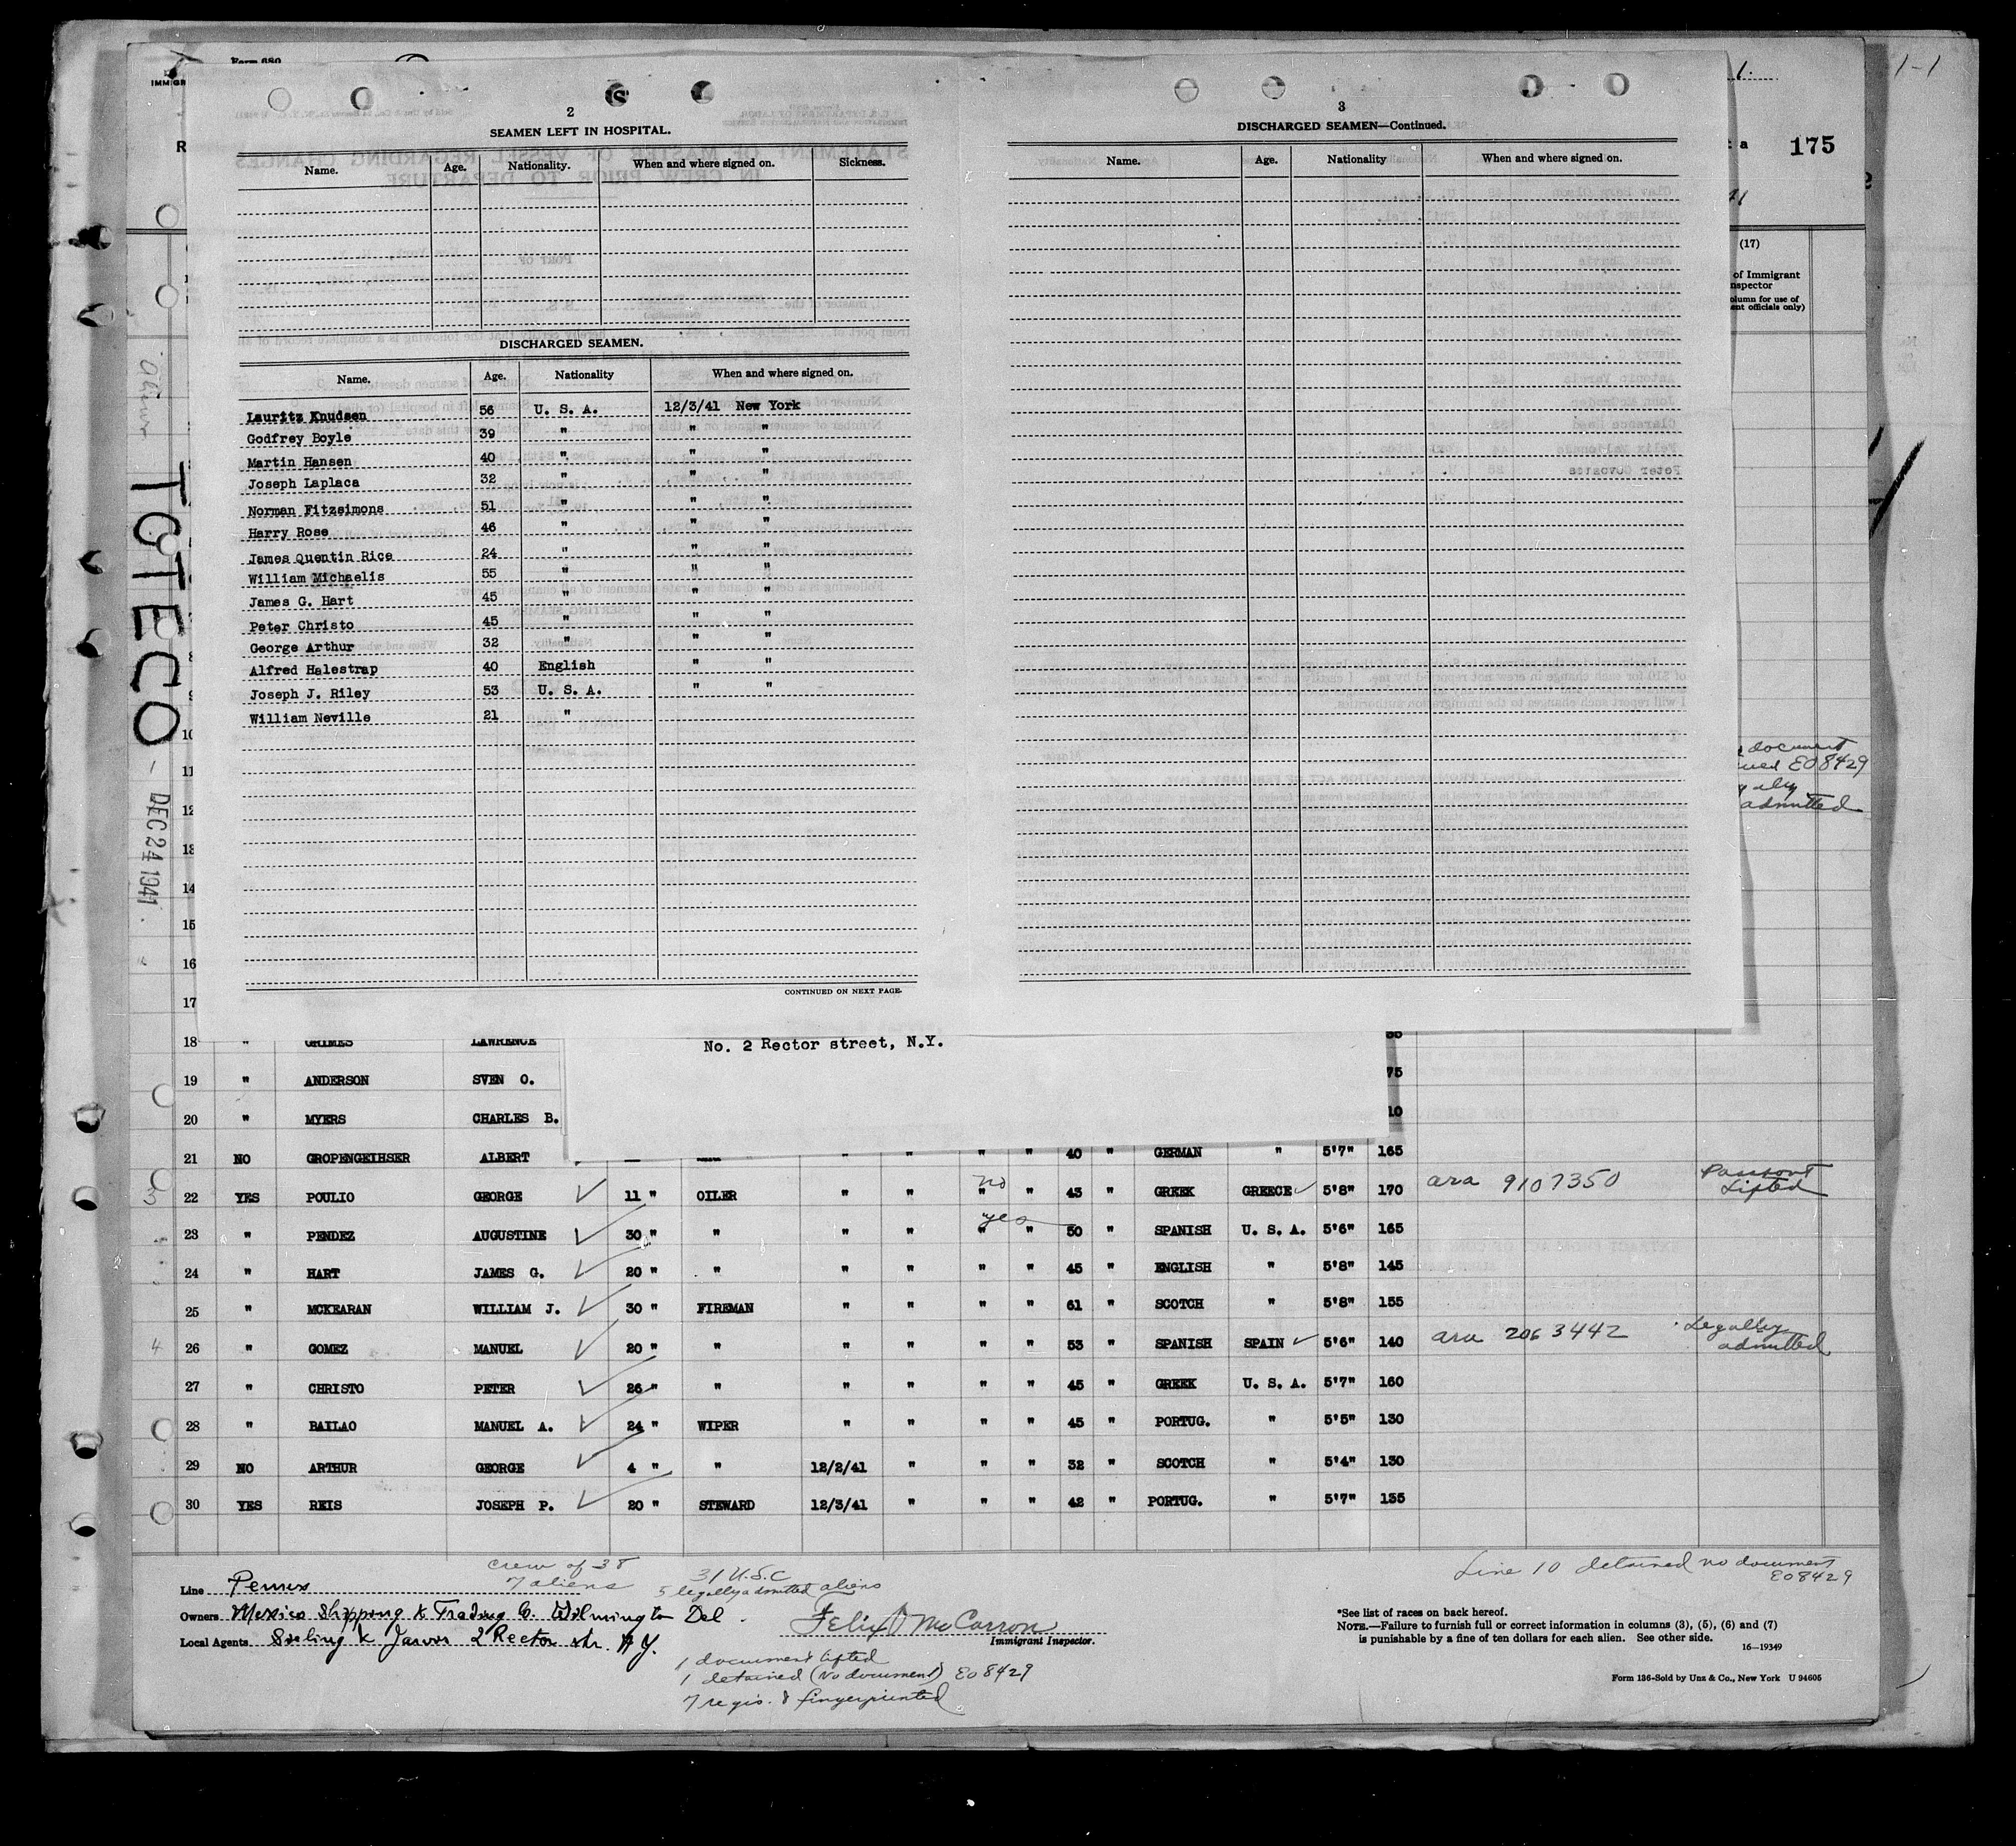 Form 680
1-1
175
2
SEAMEN LEFT IN HOSPITAL.
Name. Age. Nationality. When and where signed on. Sickness.
DISCHARGED SEAMEN.
Name. Age. Nationality When and where signed on.
Lauritz Knudsen 56 U. S. A. 12/3/41 New York
Godfrey Boyle 39 " " "
Martin Hansen 40 " " "
Joseph Laplaca 32 " " "
Norman Fitzsimons 51 " " "
Harry Rose 46 " " "
James Quentin Rice 24 " " "
William Michaelis 55 " " "
James G. Hart 45 " " "
Peter Christo 45 " " "
George Arthur 32 " " "
Alfred Halestrap 40 English " "
Joseph J. Riley 53 U. S. A. " "
William Neville 21 "
CONTINUED ON NEXT PAGE.
3
DISCHARGED SEAMEN—Continued.
Name. Age. Nationality When and where signed on.
(17)
of Immigrant
nspector
olumn for use of
ent officials only)
document
E08429
admitted
TOTECO - DEC 24 1941.
10
11
12
13
14
15
16
17
No. 2 Rector street, N.Y.
18 " GRIMES LAWRENCE
19 " ANDERSON SVEN O. 75
20 " MYERS CHARLES B. 10
21 NO GROPENGEIHSER ALBERT " " " " 40 " GERMAN " 5'7" 165
3 22 YES POULIO GEORGE 11 " OILER " " " no " 43 " GREEK GREECE 5'8" 170 ara 9107350 Passport Lifted
23 " PENDEZ AUGUSTINE 30 " " " " " yes " 50 " SPANISH U. S. A. 5'6" 165
24 " HART JAMES G. 20 " " " " " " 45 " ENGLISH " 5'8" 145
25 " MCKEARAN WILLIAM J. 30 " FIREMAN " " " " 61 " SCOTCH " 5'8" 155
4 26 " GOMEZ MANUEL 20 " " " " " " 53 " SPANISH SPAIN 5'6" 140 ara 2063442 Legally admitted
27 " CHRISTO PETER 26 " " " " " " 45 " GREEK U. S. A. 5'7" 160
28 " BAILAO MANUEL A. 24 " WIPER " " " " 45 " PORTUG. " 5'5" 130
29 NO ARTHUR GEORGE 4 " " 12/2/41 " " " 32 " SCOTCH " 5'4" 130
30 YES REIS JOSEPH P. 20 " STEWARD 12/3/41 " " " 42 " PORTUG. " 5'7" 135
crew of 38
7 aliens
31 U.S.C
5 legally admitted aliens
Line 10 detained no document
E08429
Line Pemex
Owners Mexico Shipping & Trading Co. Wilmington Del.
Local Agents Jarvis 2 Rector str. N Y.
Felix McCarron
Immigrant Inspector.
1 document lifted
1 detained (No document) E08429
7 regis. & fingerprinted
*See list of races on back hereof.
NOTE.—Failure to furnish full or correct information in columns (3), (5), (6) and (7)
is punishable by a fine of ten dollars for each alien. See other side.
16—19349
Form 136-Sold by Unz & Co., New York U 94605